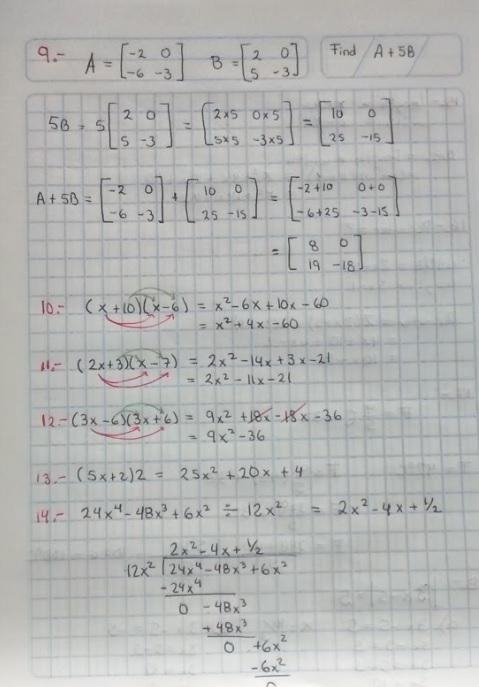 9.- A = [-2 0; -6 -3] B = [2 0; 5 -3] Find / A + 5B /
5B = 5 [2 0; 5 -3] = [2x5 0x5; 5x5 -3x5] = [10 0; 25 -15]
A + 5B = [-2 0; -6 -3] + [10 0; 25 -15] = [-2+10 0+0; -6+25 -3-15]
= [8 0; 19 -18]
10.- (x+10)(x-6) = x² -6x + 10x - 60
= x² + 4x - 60
11.- (2x+3)(x-7) = 2x² - 14x + 3x - 21
= 2x² - 11x - 21
12.- (3x-6)(3x+6) = 9x² + 18x - 18x - 36
= 9x² - 36
13.- (5x+2)2 = 25x² + 20x + 4
14.- 24x⁴ - 48x³ + 6x² ÷ 12x² = 2x² - 4x + 1/2
2x² - 4x + 1/2
12x² √24x⁴ - 48x³ + 6x²
-24x⁴
0 - 48x³
+ 48x³
0 +6x²
-6x²
0